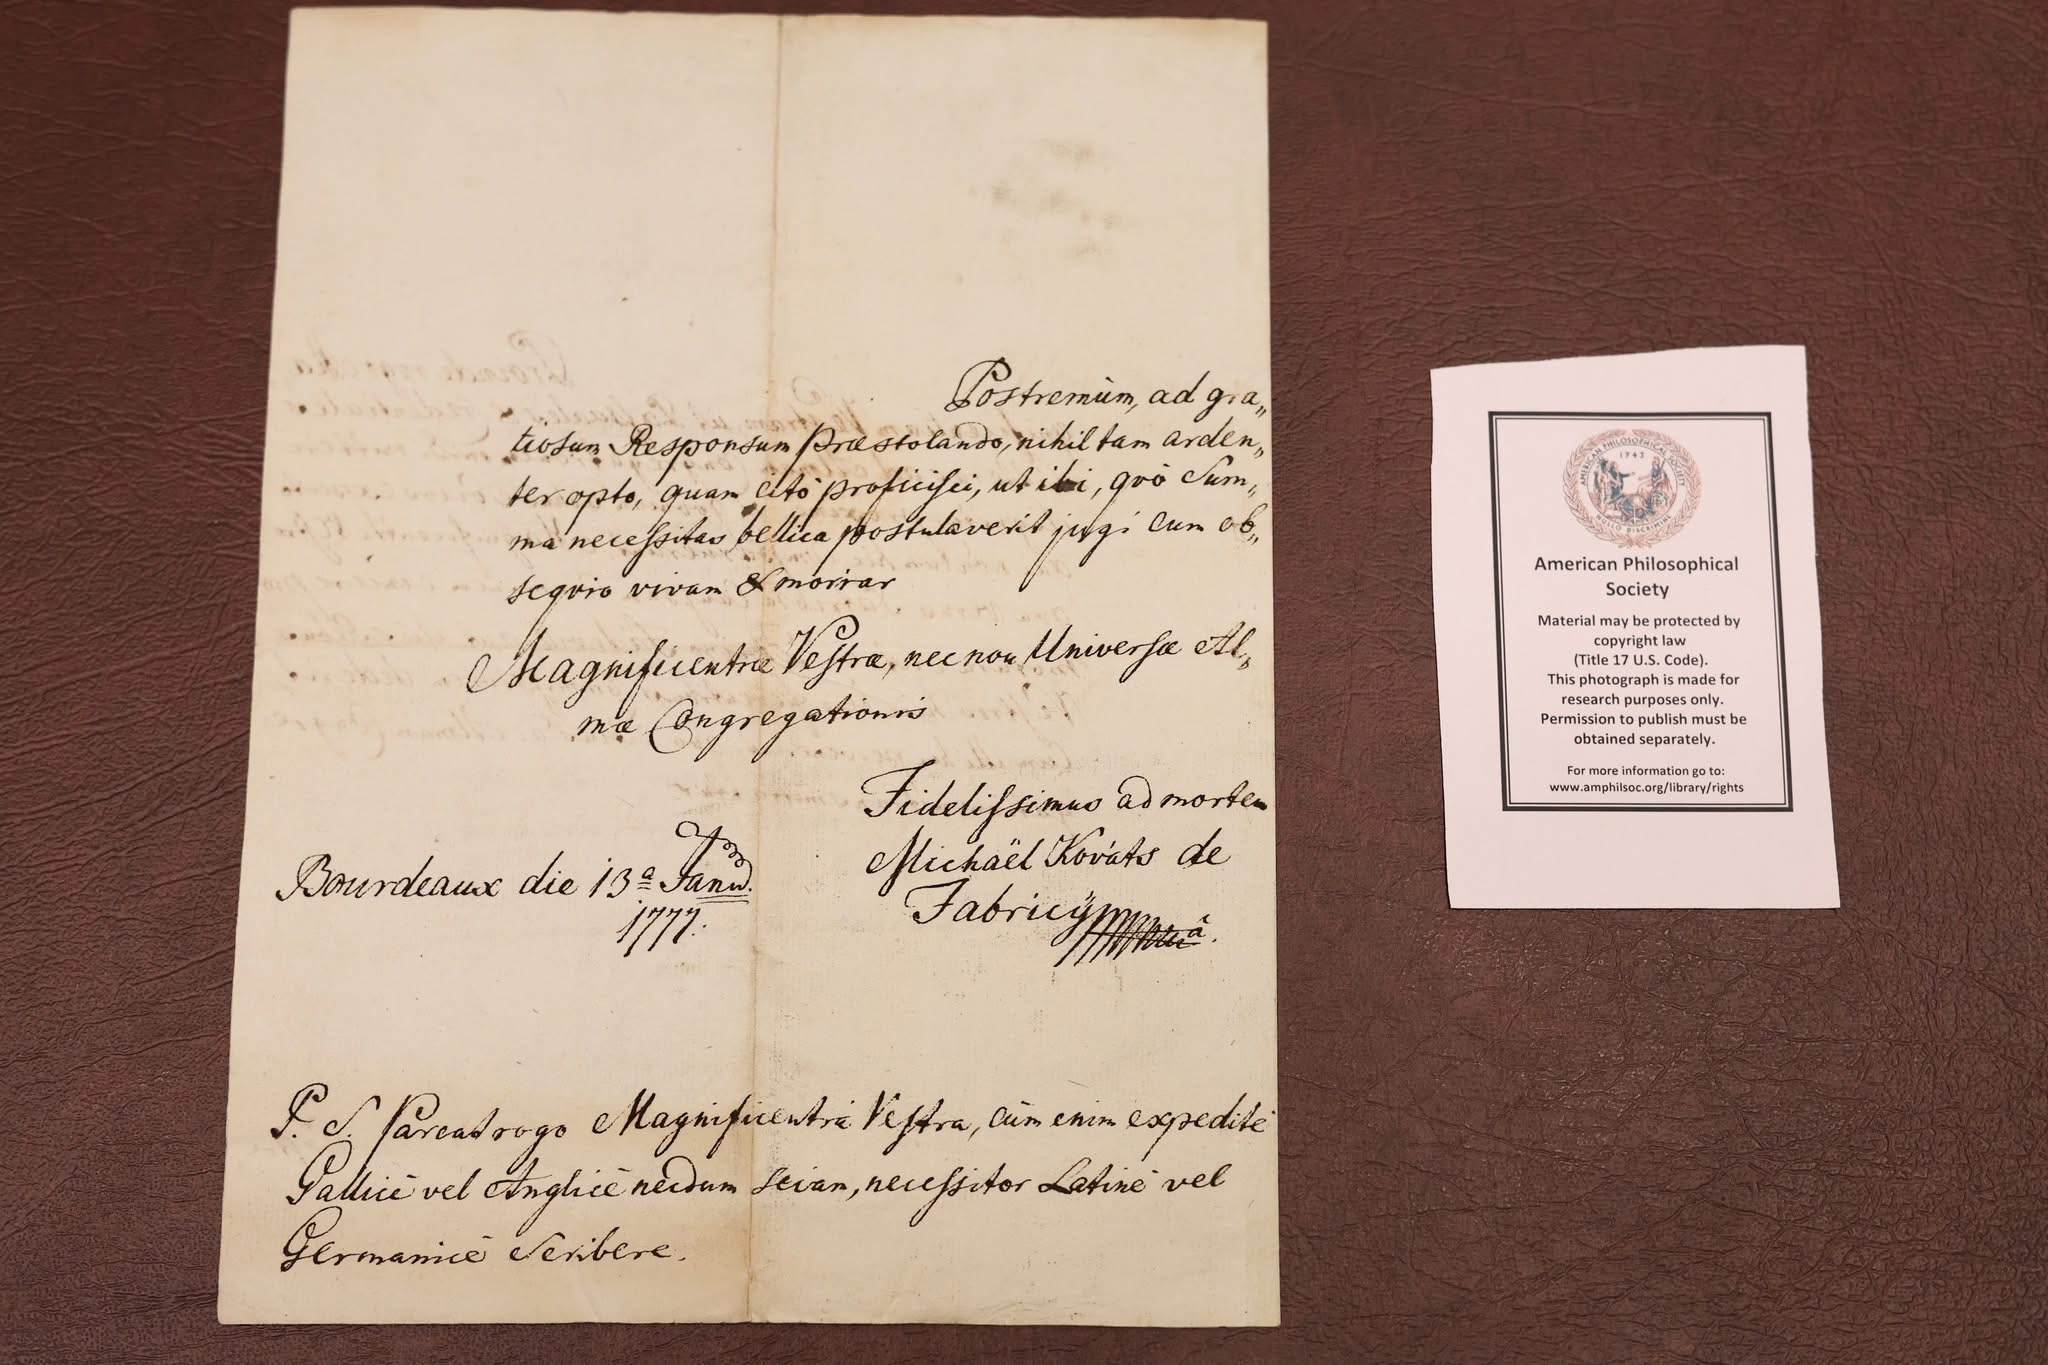 Postremùm, ad gra„
tiosum Responsum præstolando, nihil tam arden„
ter opto, quam citò proficisci, ut ibi, qvò Sum„
ma necessitas bellica postulaverit jugi cum ob„
seqvio vivam & moriar
Magnificentiæ Vestræ, nec non Universæ Al„
mæ Congregationis
Fidelissimus ad mortem
Michaël Kováts de
Fabricÿ
Bourdeaux die 13ª Janu.
1777.
P. S. Parcat rogo Magnificentia Vestra, cùm enim expeditè
Gallicè vel Anglicè necdum sciam, necessitor Latinè vel
Germanicè Scribere.
AMERICAN PHILOSOPHICAL SOCIETY
1743
NULLO DISCRIMINE
American Philosophical
Society
Material may be protected by
copyright law
(Title 17 U.S. Code).
This photograph is made for
research purposes only.
Permission to publish must be
obtained separately.
For more information go to:
www.amphilsoc.org/library/rights